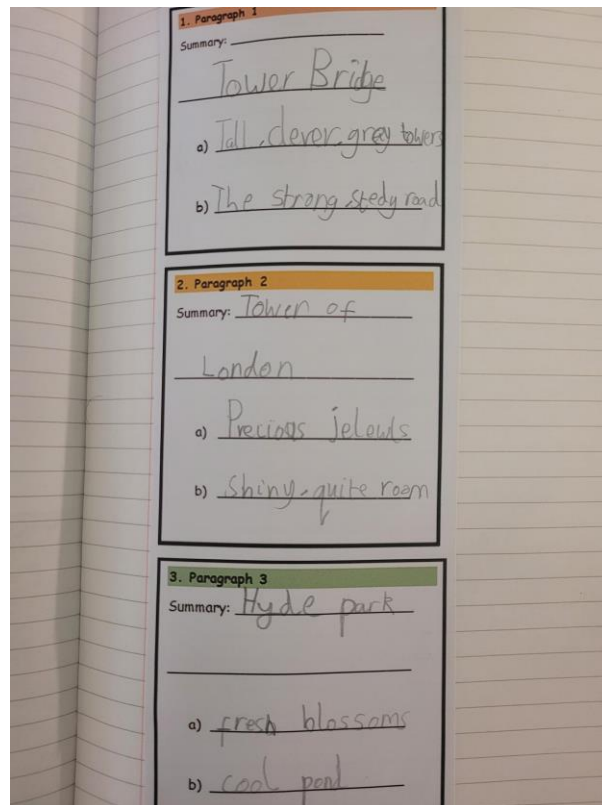 1. Paragraph 1
Summary:
Tower Bridge
a) Tall, clever, grey towers
b) The strong, stedy road
2. Paragraph 2
Summary: Tower of
London
a) Precious jelewls
b) Shiny, quite room
3. Paragraph 3
Summary: Hyde park
a) fresh blossoms
b) cool pond